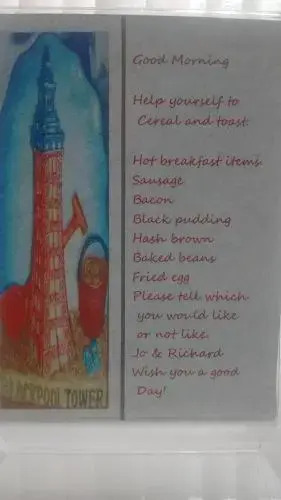 Good Morning
Help yourself to
Cereal and toast.
Hot breakfast items
Sausage
Bacon
Black pudding
Hash brown
Baked beans
Fried egg
Please tell which
you would like
or not like.
Jo & Richard
Wish you a good
Day!
BLACKPOOL TOWER